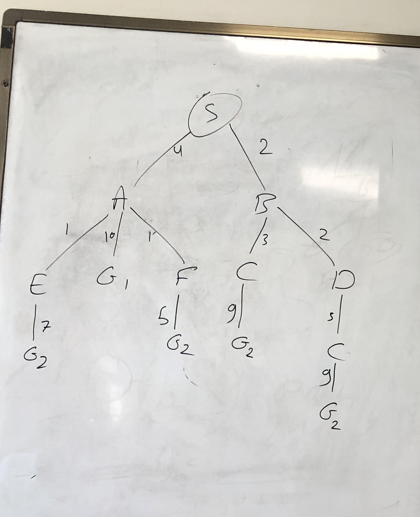 S
4 2
A B
1 10 1 3 2
E G1 F C D
7 5 9 5
G2 G2 G2 C
9
G2